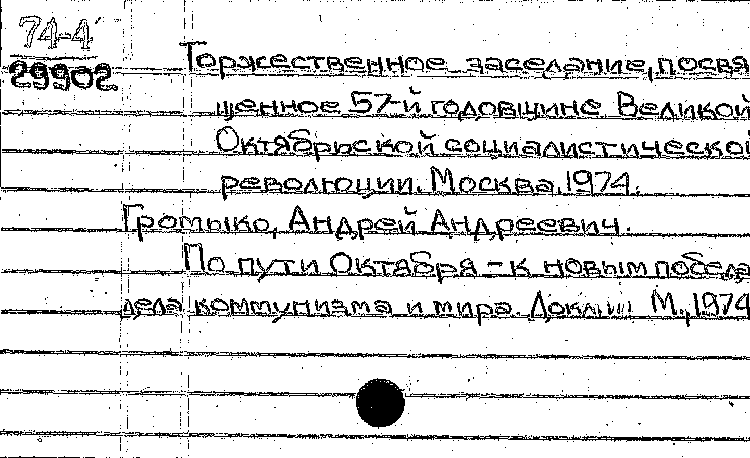 74-4
29902
Торжественное заседание, посвя
щенное 57-й годовщине Великой
Октябрьской социалистической
революции. Москва, 1974.
Громыко, Андрей Андреевич.
По пути Октября - к новым победа
дела коммунизма и мира. М., 1974